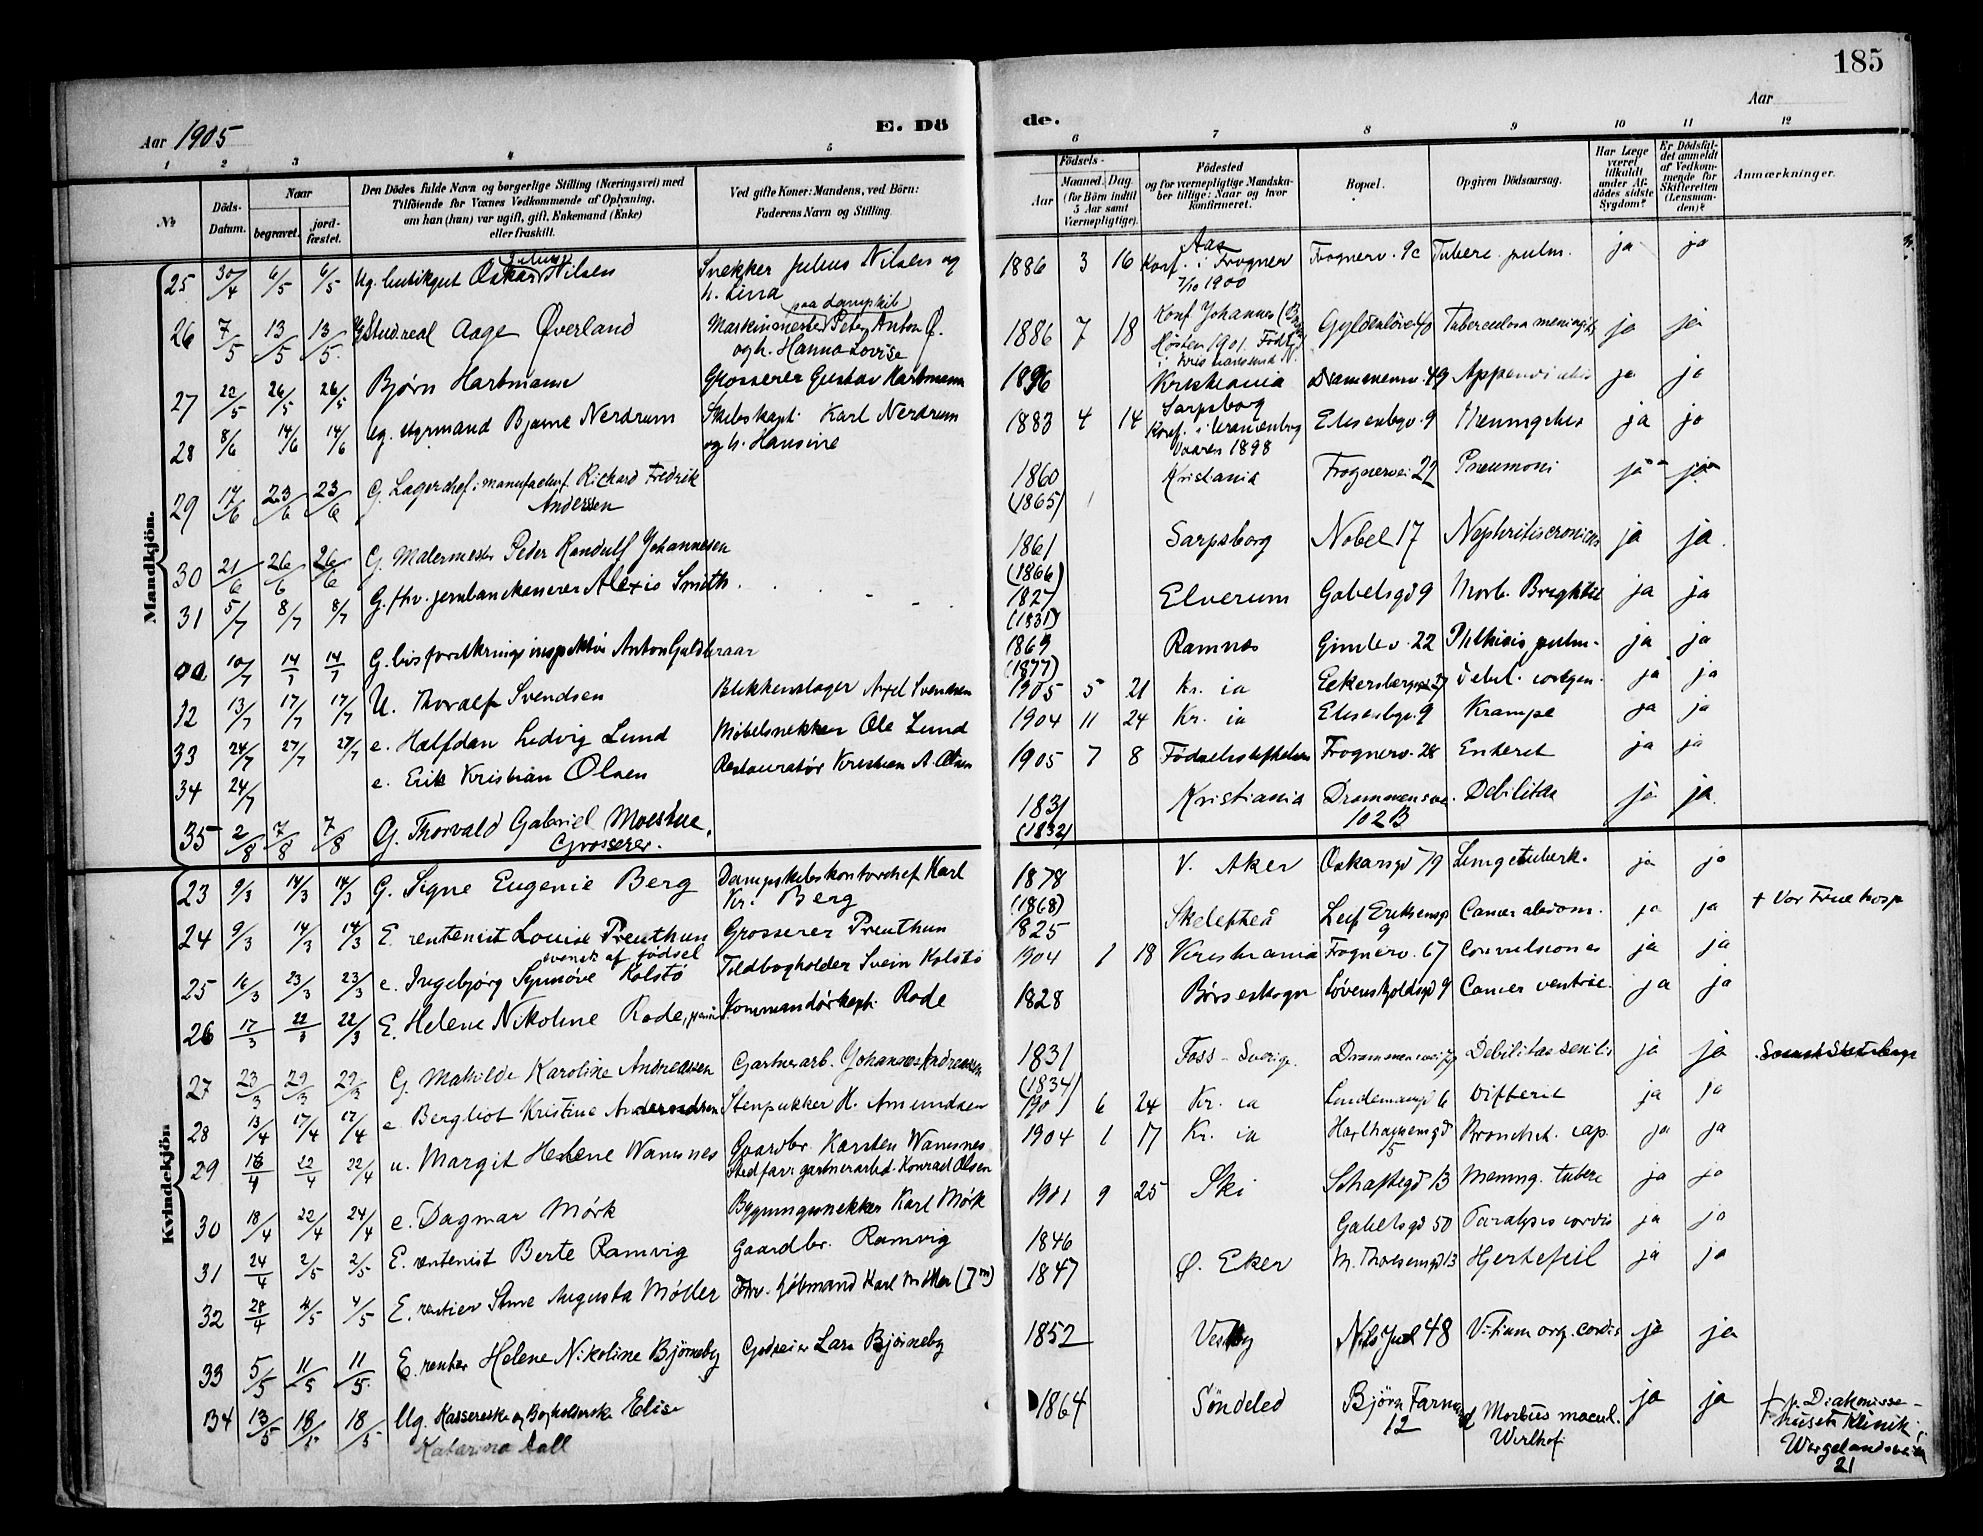 185
Aar 1905
E. Dö
de.
Aar
1 2 3 4 5 6 7 8 9 10 11 12
№
Döds-Datum.
Naar
begravet.
jord-fæstet.
Den Dödes fulde Navn og borgerlige Stilling (Næringsvei) med
Tilföiende for Voxnes Vedkommende af Oplysning,
om han (hun) var ugift, gift, Enkemand (Enke)
eller fraskilt.
Ved gifte Koner: Mandens, ved Börn:
Faderens Navn og Stilling.
Födsels-
Aar
Maaned. Dag
(for Börn indtil
5 Aar samt
Værnepligtige).
Födested
og for værnepligtige Mandska-
ber tillige: Naar og hvor
konfirmeret.
Bopæl.
Opgiven Dödsaarsag.
Har Læge
været
tilkaldt
under Af-
dödes sidste
Sygdom?
Er Dödsfal-
det anmeldt
af Vedkom-
mende for
Skifteretten
(Lensman-
den)?
Anmærkninger.
Mandkjön.
25 30/4 6/5 6/5 Ug. Oskar Nilsen Snekker Julius Nilsen og h. Lina 1886 3 16 Aas Konf. i Frogner 7/10 1900 Frognerv. 9c Tuberc. pulm. ja ja
26 7/5 13/5 13/5 Stud. real Aage Øverland Maskinmester Peter Anton Ø. og h. Hanna Lovise 1886 7 18 Konf Johannes Høsten 1901. Født i Kristiansund N. Tuberculosa meningitis ja ja
27 22/5 26/5 26/5 Bjørn Hartmann Grosserer Gustav Hartmann 1896 Kristiania Drammensv. 49 Appendicitis ja ja
28 8/6 14/6 14/6 Ug. Bjarne Nerdrum Skibskapt. Karl Nerdrum og h. Hansine 1883 4 14 Sarpsborg Konf. i Uranienborg Vaaren 1898 Elisenbgv. 9 Meningitis ja ja
29 17/6 23/6 23/6 G. Lagerchef i manufacturf. Richard Fredrik Anderssen 1860 (1865) Kristiania Frognervei 22 Pneumoni ja ja
30 21/6 26/6 26/6 G. Malermester Peder Randulf Johannesen 1861 (1866) Sarpsborg Nobel 17 Nephritis cronicus ja ja
31 5/7 8/7 8/7 G. fhv. jernbanekasserer Alexis Smith 1827 (1831) Elverum Gabelsgd 9 Morb. Brightii ja ja
10/7 14/7 14/7 G. livsforsikringsinspektør Anton Guldbraar 1869 (1877) Ramnes Gimlev. 22 Phthisis pulm. ja ja
32 13/7 17/7 17/7 U. Thoralf Svendsen Blikkenslager Axel Svendsen 1905 5 21 Kr. ia Debil. congen. ja ja
33 24/7 27/7 27/7 e. Halfdan Ludvig Lund Møbelsnekker Ole Lund 1904 11 24 Kr. ia Elisenbgv. 9 Krampe ja ja
34 24/7 e. Erik Kristian Olsen Restauratør Kristian A. Olsen 1905 7 8 Fødselsstiftelsen Frognerv. 28 Enterit ja ja
35 2/8 7/8 7/8 G. Thorvald Gabriel Moestue. Grosserer. 1831 (1832) Kristiania Drammensvei. 102B Debilitas ja ja
Kvindekjön
23 9/3 14/3 14/3 G. Signe Eugenie Berg Dampskibskontorchef Karl Kr. Berg 1878 (1868) V. Aker Oskarsgd 79 Lungetuberk. ja ja
24 9/3 14/3 14/3 E. rentenist Louise Preuthun svensk af fødsel Grosserer Preuthun 1825 Skelefteå Leif Eriksensgd 9 Cancer abdom. ja ja + Vor Frue hosp
25 16/3 23/3 23/3 e. Ingebjørg Synnöve Kolstö Toldbogholder Svein Kolstö 1904 1 18 Kristiania Frognerv. 67 Convulsiones ja ja
26 17/3 22/3 22/3 E. Helene Nikoline Rode, Kommandørkapt. Rode 1828 Børseskogn Løvenskjoldsgd 9 Cancer ventric. ja ja
27 23/3 29/3 29/3 G. Mathilde Karoline Andreassen Gartnerarb. Johannes Andreassen 1831 (1834) Foss - Sverige Debilitas senilis ja ja Svensk Statsborger
28 13/4 17/4 17/4 e Bergliot Kristine Stenpukker H. Amundsen 6 24 Kr. ia Lindemansgd 6 Difterit ja ja
29 18/4 22/4 22/4 u. Margit Helene Wamnes Gaardbr. Karsten Wamnes Stedfar: gartnerarbd. Konrad Olsen 1904 1 17 Kr. ia Haxthausensgd 5 Bronchit. cap. ja ja
30 18/4 22/4 24/4 e. Dagmar Mörk Bygningssnekker Karl Mörk 1901 9 25 Ski Schaftegd 13 Mening. tuberc ja ja
31 24/4 2/5 2/5 E. rentenist Berte Ramvig Gaardbr. Ramvig 1846 Gabelsgd 50 Paralysis cordis ja ja
32 28/4 4/5 4/5 E. rentier Augusta Möller Fhv. kjöbmand Karl Möller 1847 Ø. Eker M. Thoresensgd 13 Hjertefeil ja ja
33 5/5 11/5 11/5 E. rentier Helene Nikoline Bjørneby Godseier Lars Bjørneby 1852 Vestby Nils Juel 48 Vitium org. cordis ja ja
34 13/5 18/5 18/5 Ug. Kassererske og Bogholderske Elise Katarina Aall 1864 Søndeled Bjørn Farmand 12 Morbus macul. Werlhofi ja ja + p. Diakonisse-husets Klinik, Wergelandsveien 21